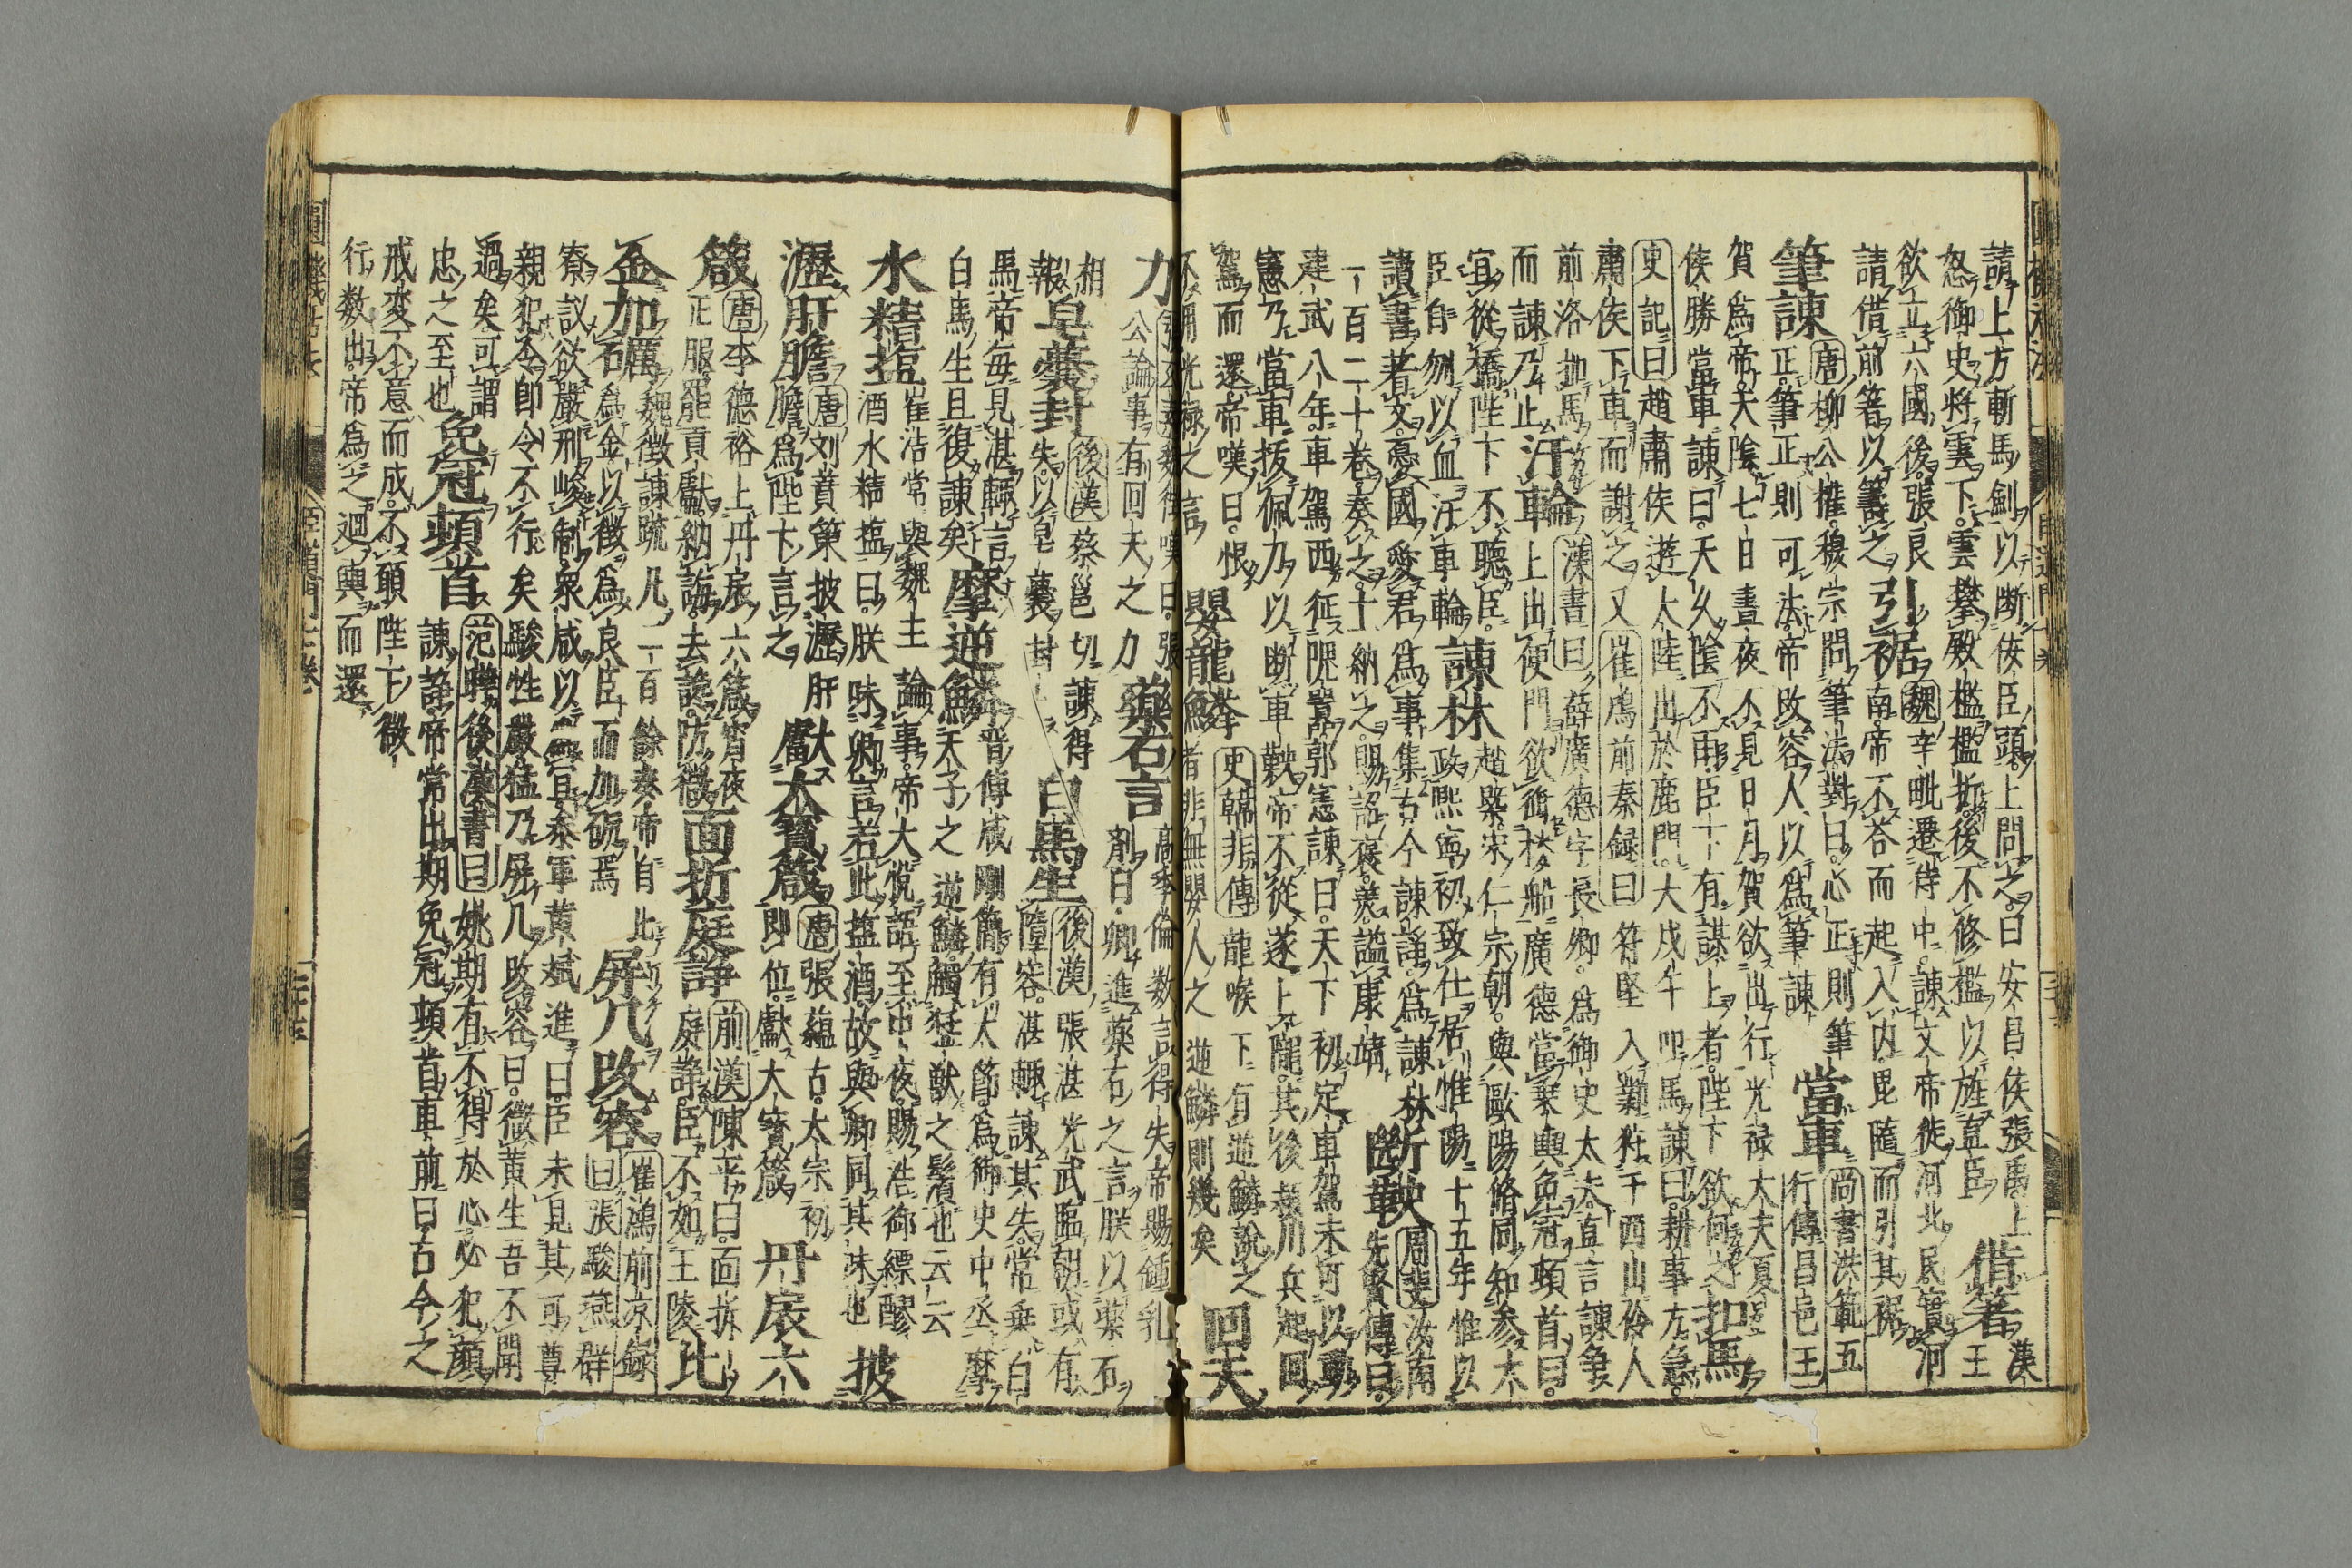 請上方斬馬劍以断侫臣頭上問之曰安昌侯張禹上
怒御史將雲下雲攀殿檻檻折後不修檻以旌直臣 借箸 漢王
欲立六國後張良
請借前箸以籌之 引裾 魏辛毗遷侍中諫文帝徙河北民實河
南帝不荅而起入内毘隨而引其裾
筆諫 唐柳公權穆宗問筆法對曰心正則筆
正筆正則可法帝改容人以爲筆諫 當車 尚書洪範五
行傳昌邑王
賀爲帝天陰七日晝夜不見日月賀欲出行光禄大夫夏
侯勝當車諫曰天久陰不雨臣下有謀上者陛下欲何之 扣馬
史記曰趙肅侯遊大陸出於鹿門大戊午叩馬諫曰耕事方急
肅侯下車而謝之又 崔鴻前秦録曰 符堅入鄴狩于西山伶人
前洛扣馬
而諫乃止 汙車輪 漢書曰薛廣德字長卿爲御史大夫直言諫爭
上出便門欲御樓船廣德當乗輿免冠頓首曰
宜從橋陛下不聽臣
臣自刎以血汙車輪 諫林 趙槩宋仁宗朝與歐陽脩同知参大
政熙寧初致仕居惟陽十五年惟以
讀書著文憂國愛君爲事集古今諫諍爲諫林
一百二十卷奏之上納之賜詔褒美謚康靖 断鞅 周斐汝南
先賢傳曰
建武八年車駕西征隗囂郭憲諫曰天下初定車駕未可以動
憲乃當車拔佩刀以断車鞅帝不從遂上隴其後潁川兵起囘
駕而還帝嘆曰恨
不用光禄之言 嬰龍鱗 史韓非傳龍喉下有逆鱗説之
者非無嬰人之逆鱗則幾矣 回天
力 張玄素魏徴嘆曰張
公論事有回天之力 藥石言 高季倫数言得失帝賜鍾乳
劑曰卿進藥石之言朕以藥石
相
報 皁嚢封 後漢蔡邕切諫得
失以皁嚢封 白馬生 後漢張湛光武臨朝或有
隨容湛輙諫其失常乗白
馬帝毎見湛輙言
白馬生且復諫矣 摩逆鱗 晋傅咸剛簡有大節爲御史中丞摩
天子之逆鱗觸猛獣之鬚也云云
水精塩 崔浩常與魏主論事帝大悦語至中夜賜浩御縹醪
酒水精塩曰朕味卿言若此塩酒故與卿同其味也 披
瀝肝膽 唐刘蕡策披瀝肝
膽爲陛下言之 獻大寳箴 唐張蘊古太宗初
即位獻大寳箴 丹扆六
箴 唐李德裕上丹扆六箴宵夜
正服罷貢獻納誨去讒防微 面折庭諍 前漢陳平曰面折
庭諍臣不如王陵 比
金加礪 魏徴諫疏凡二百餘奏帝自比
爲金以徴爲良臣而加礪焉 屏几改容 崔鴻前凉録
曰張駿燕群
寮議欲嚴刑峻制衆咸以爲宜参軍黄斌進曰臣未見其可尊
親犯令即令不行矣駿性嚴猛乃屏几改容曰微黄生吾不聞
過矣可謂
忠之至也 免冠頓首 范曄後漢書曰姚期有不得於心必犯顔
諫諍帝常出期免冠頓首車前曰古今之
戒変不意而成不願陛下微
行数出帝爲之廻輿而還